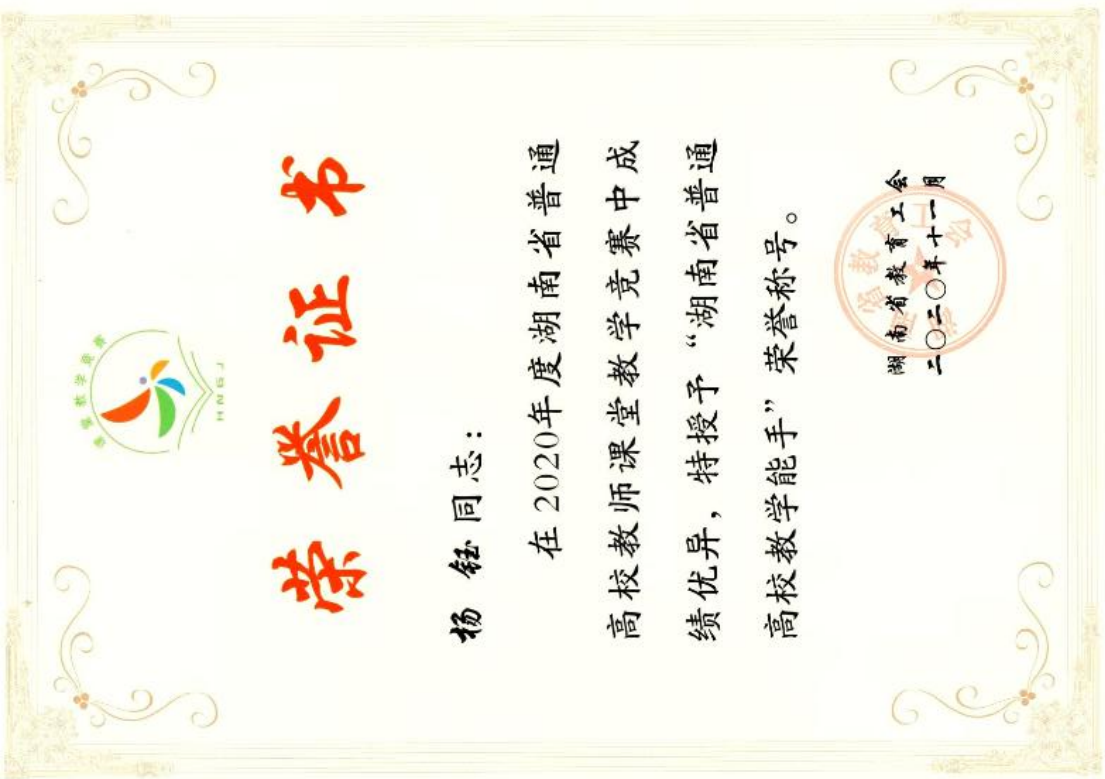 课堂教学竞赛
HNGJ
荣誉证书
杨钰同志：
在2020年度湖南省普通
高校教师课堂教学竞赛中成
绩优异，特授予“湖南省普通
高校教学能手”荣誉称号。
湖南省教育工会
二〇二〇年十一月